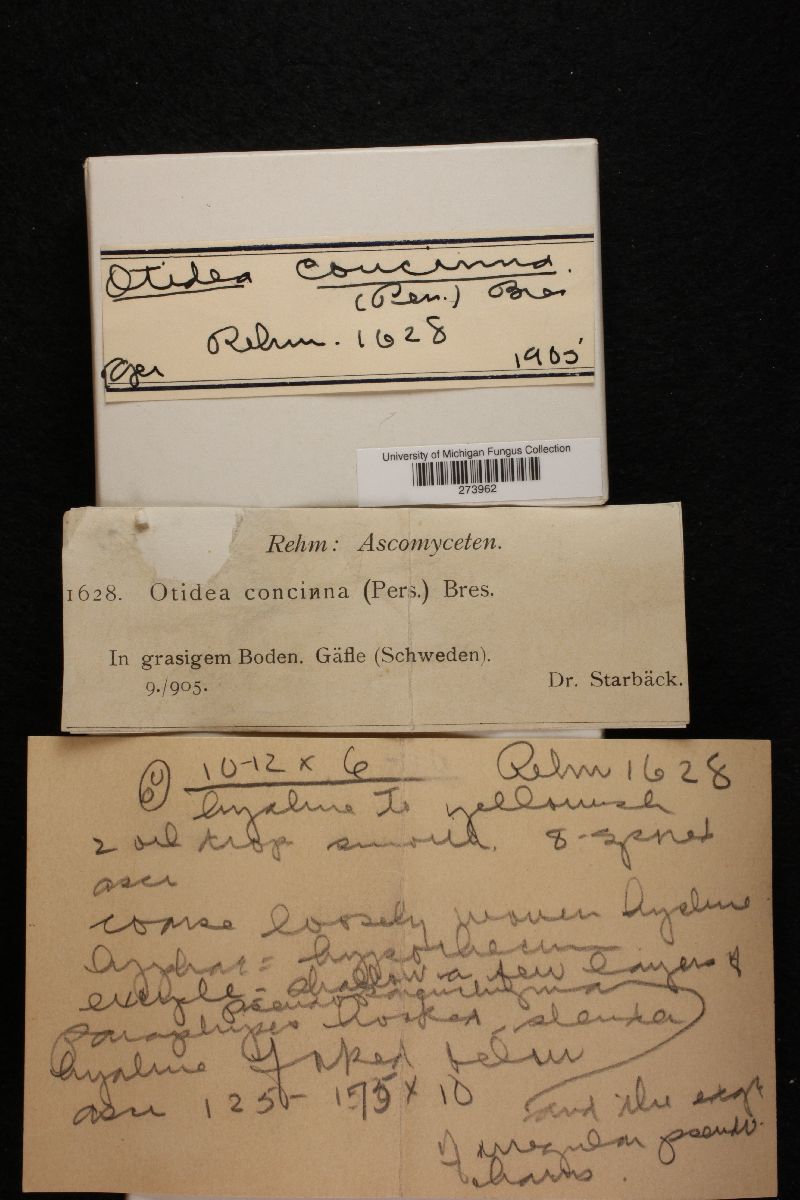 Otidea concinna.
(Pers.) Bres
Rehm. 1628
Ger 1905
University of Michigan Fungus Collection
273962
Rehm: Ascomyceten.
1628. Otidea concinna (Pers.) Bres.
In grasigem Boden. Gäfle (Schweden).
9./905. Dr. Starbäck.
10-12 x 6 Rehm 1628
hyaline to yellowish
2 oil drop smooth. 8-spored
asci
coarse loosely woven hyaline
hyphae = hypothecium
exciple - shallow a few layers of
pseudoparenchyma
paraphyses hooked slender
hyaline forked below
asci 125- 175 x 10
and the
of irregular pseudo.
chains.